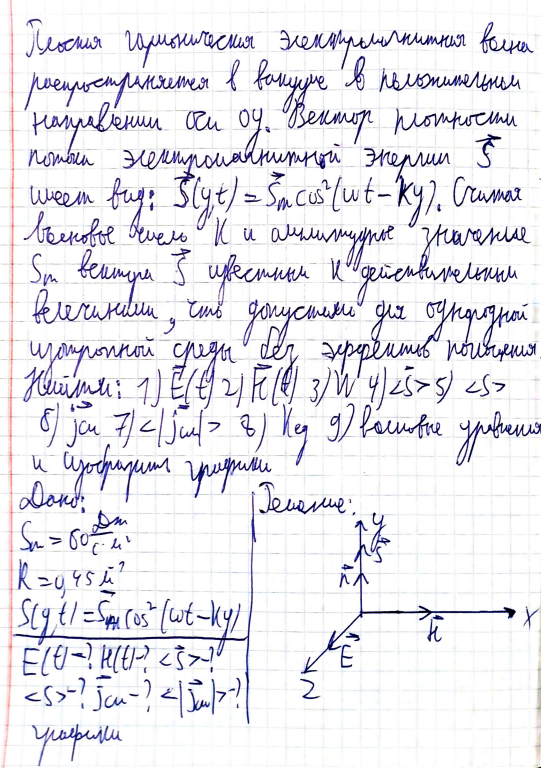 Плоская гармоническая электромагнитная волна
распространяется в вакууме в положительном
направлении оси ОУ. Вектор плотности
потока электромагнитной энергии S⃗
имеет вид: S⃗(y,t) = S⃗m cos²(ωt − Ky). Считая
волновое число K и амплитудное значение
Sm вектора S⃗ известным и действительными
величинами, что допустимо для однородной
изотропной среды без эффектов поглощения.
Найти: 1) E⃗(t) 2) H⃗(t) 3) W 4) <S⃗> 5) <S>
6) j⃗см 7) <|j⃗см|> 8) Kед 9) волновые уравнения
и изобразить графики
Дано:
Sm = 60 Дж/с·м²
K = 0,45 м⁻¹
S(y,t) = S⃗m cos²(ωt − Ky)
E(t) − ? H(t) − ? <S⃗> − ?
<S> − ? j⃗см − ? <|j⃗см|> − ?
графики
Решение:
y
S⃗
K⃗
H⃗
x
E⃗
Z